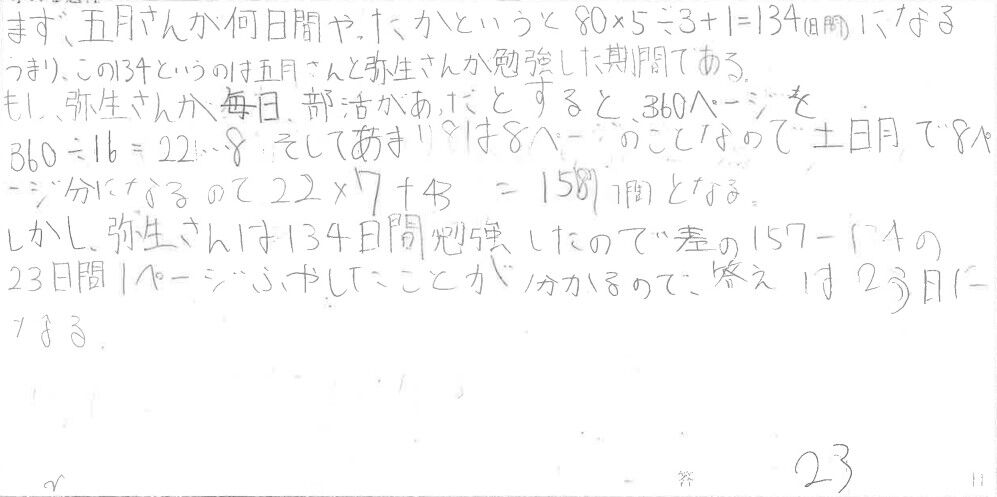 まず、五月さんが何日間やったかというと80×5÷3+1=134(日間)になる
つまり、この134というのは五月さんと弥生さんが勉強した期間である。
もし、弥生さんが毎日、部活があったとすると、360ページを
360÷16=22…8 そしてあまり8は8ページのことなので土日月で8ペ
ージ分になるので22×7+3 = 157日間となる。
しかし、弥生さんは134日間勉強したので差の157-134の
23日間1ページふやしたことが分かるので、答えは23日に
なる。
答 23 日